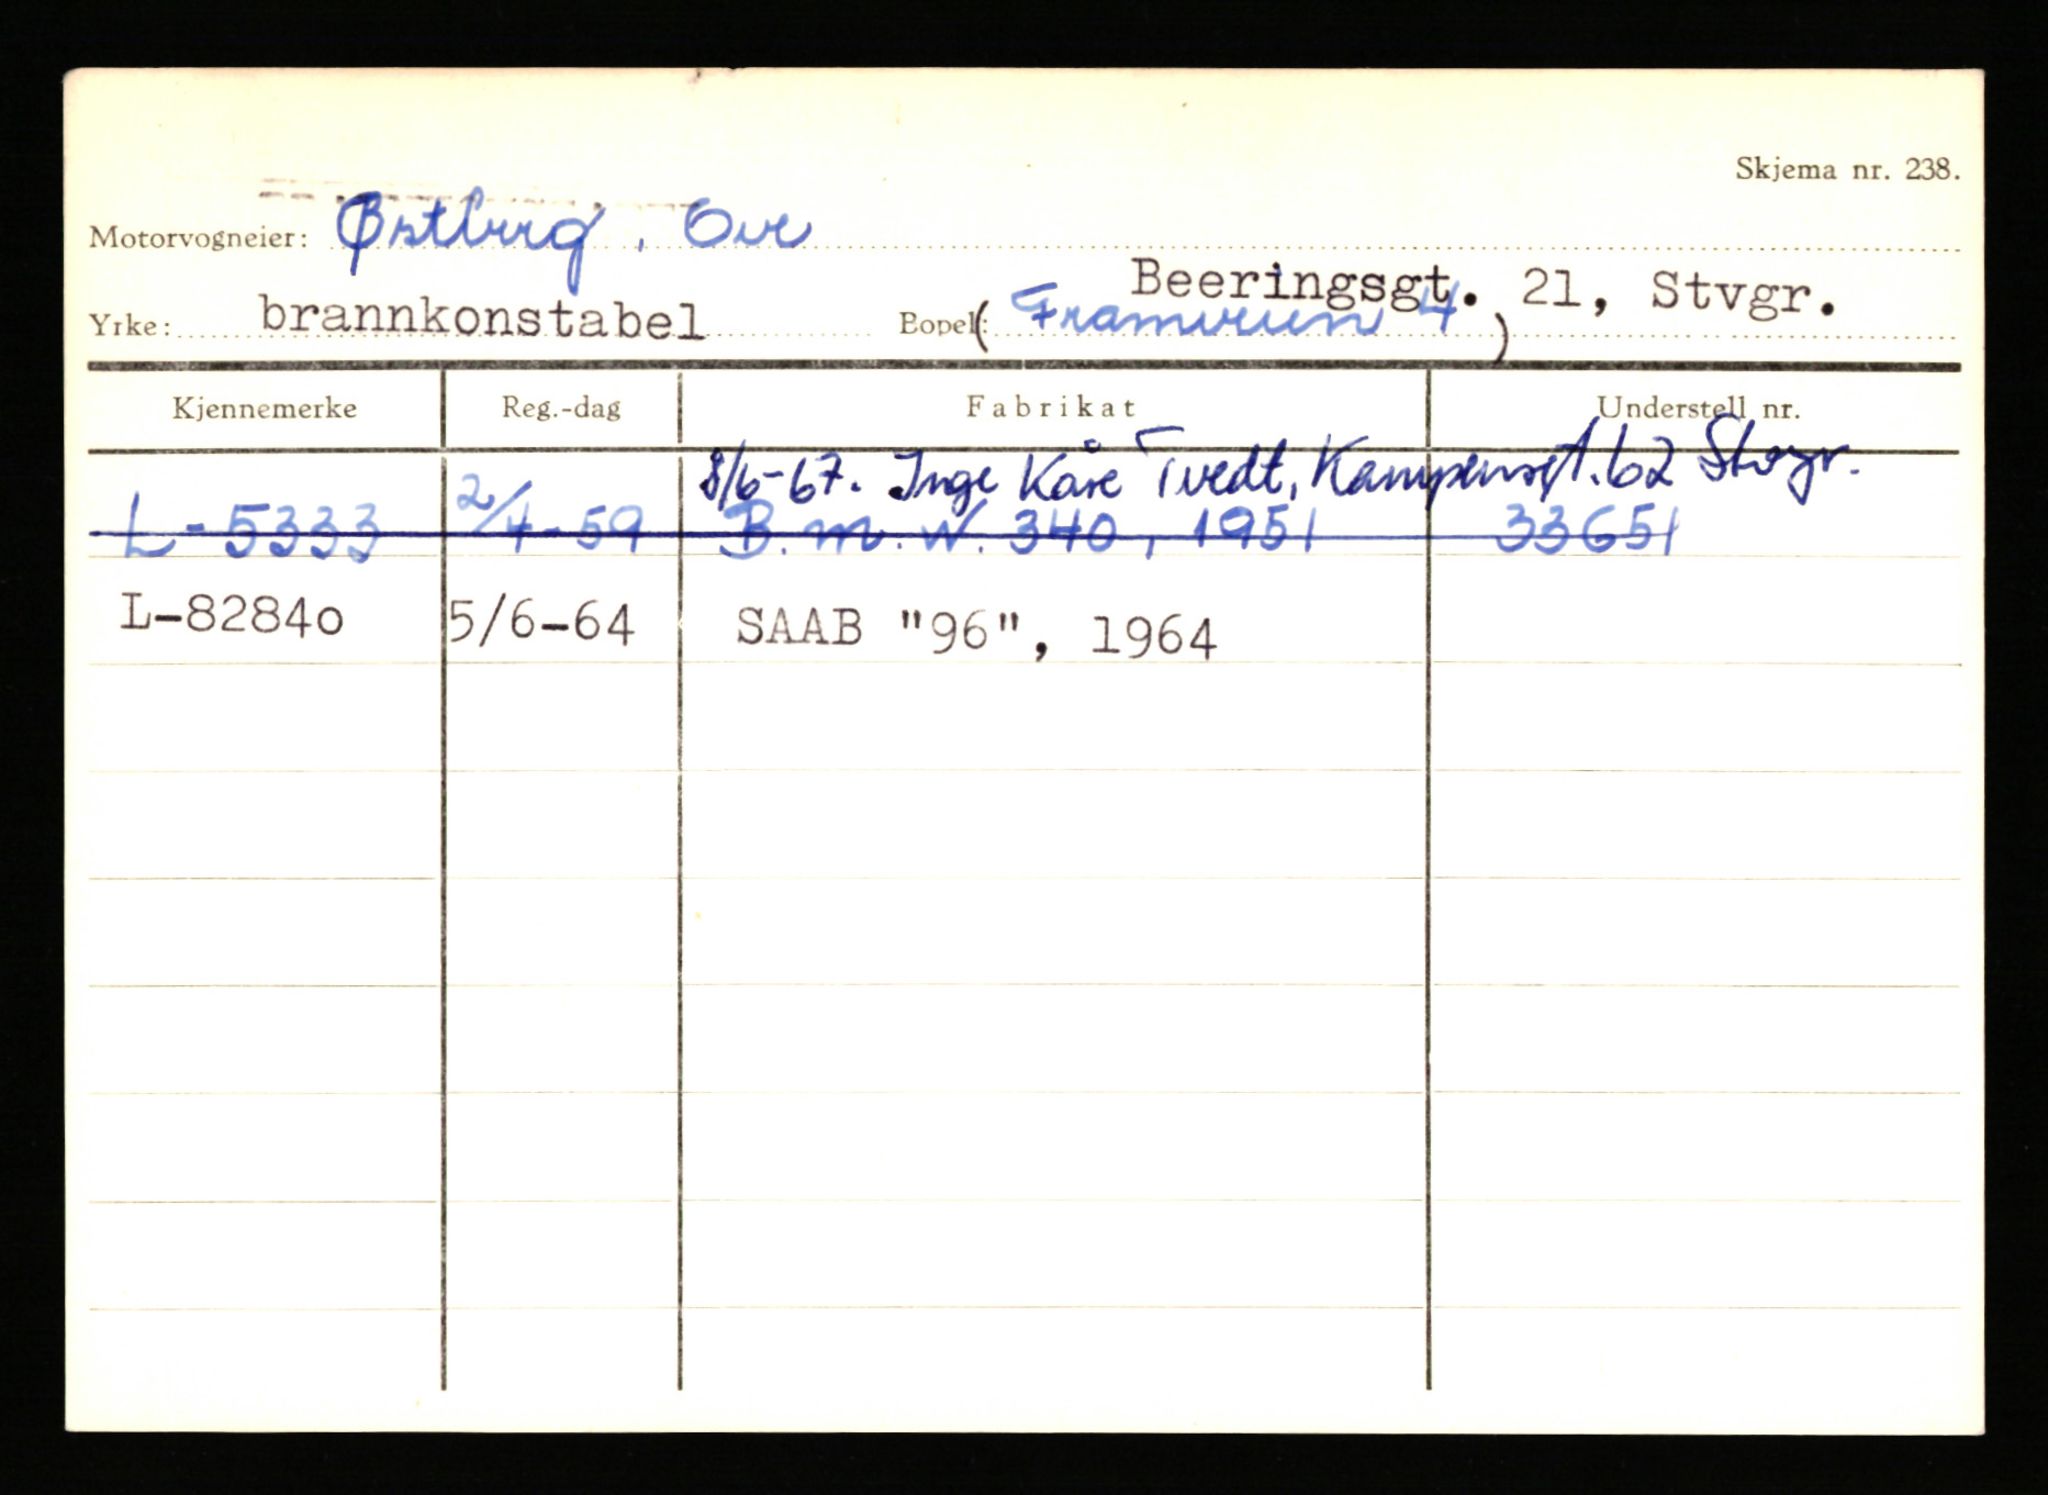 Skjema nr. 238.
Motorvogneier: Østberg, Ove
Beeringsgt. 21, Stvgr.
Yrke: brannkonstabel Bopel: (Framveien 4)
Kjennemerke Reg.-dag Fabrikat Understell nr.
8/6-67. Inge Kåre Tvedt, Kampensgt. 62 Stvgr.
L-5333 2/4-59 B.m.W. 340, 1951 33651
L-8284o 5/6-64 SAAB "96", 1964